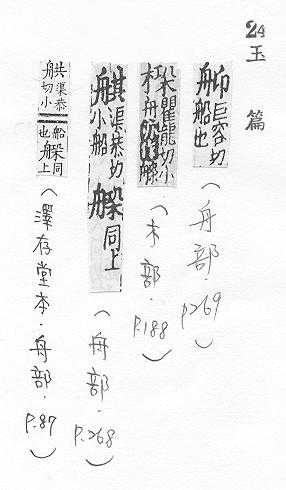 24 玉篇
巨容切船也 (舟部.P.269)
瞿龍切小 (木部.P.188)
舼 渠恭切小船 同上 (舟部.P.268)
舼 渠恭切小船也 同上 (澤存堂本.舟部.P.87)